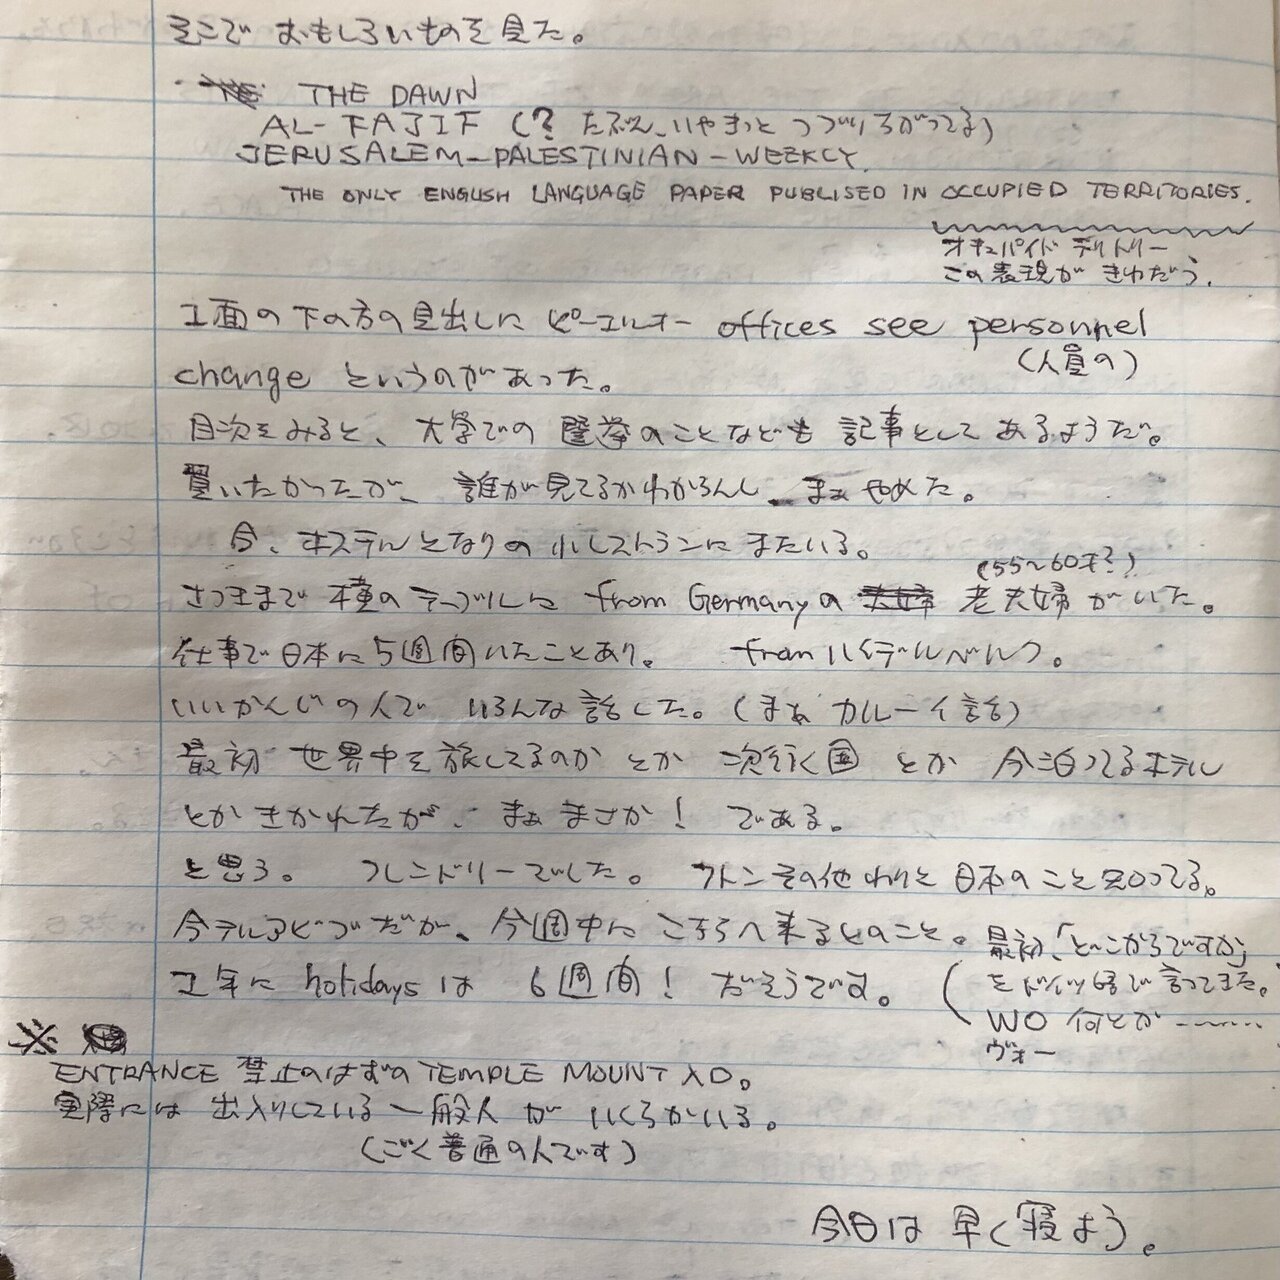 そこで おもしろいものを見た。
THE DAWN
AL-FAJIF (? たぶん、いやきっと つづりちがってる)
JERUSALEM-PALESTINIAN-WEEKLY
THE ONLY ENGLISH LANGUAGE PAPER PUBLISED IN OCCUPIED TERRITORIES.
オキュパイド テリトリー
この表現が きわだつ.
1面の下の方の見出しに ピーエルオー offices see personnel
(人員の)
change というのがあった。
目次をみると、大学での選挙のことなども 記事として あるようだ。
買いたかったが、誰が見てるかわからんし、まぁ やめた。
今、ホステルとなりの 小レストランに またいる。
(55~60才?)
さっきまで 横のテーブルに from Germanyの 老夫婦がいた。
仕事で日本に5週間いたことあり。 from ハイデルベルク。
いいかんじの人で いろんな話した。(まぁ カルーイ話)
最初 世界中を旅してるのか とか 次行く国 とか 今泊ってるホテル
とか きかれたが、まぁ まさか! である。
と思う。 フレンドリーでした。 フトン その他 わりと 日本のこと知ってる。
今テルアビブだが、今週中に こちらへ来るとのこと。
最初「どこからですか」
をドイツ語で言ってきた。
WO 何とか ------
ヴォー
1年に holidaysは 6週間! だそうです。
※
ENTRANCE 禁止のはずの TEMPLE MOUNT 入口。
実際には 出入りしている 一般人が いくらかいる。
(ごく普通の人です)
今日は 早く寝よう。